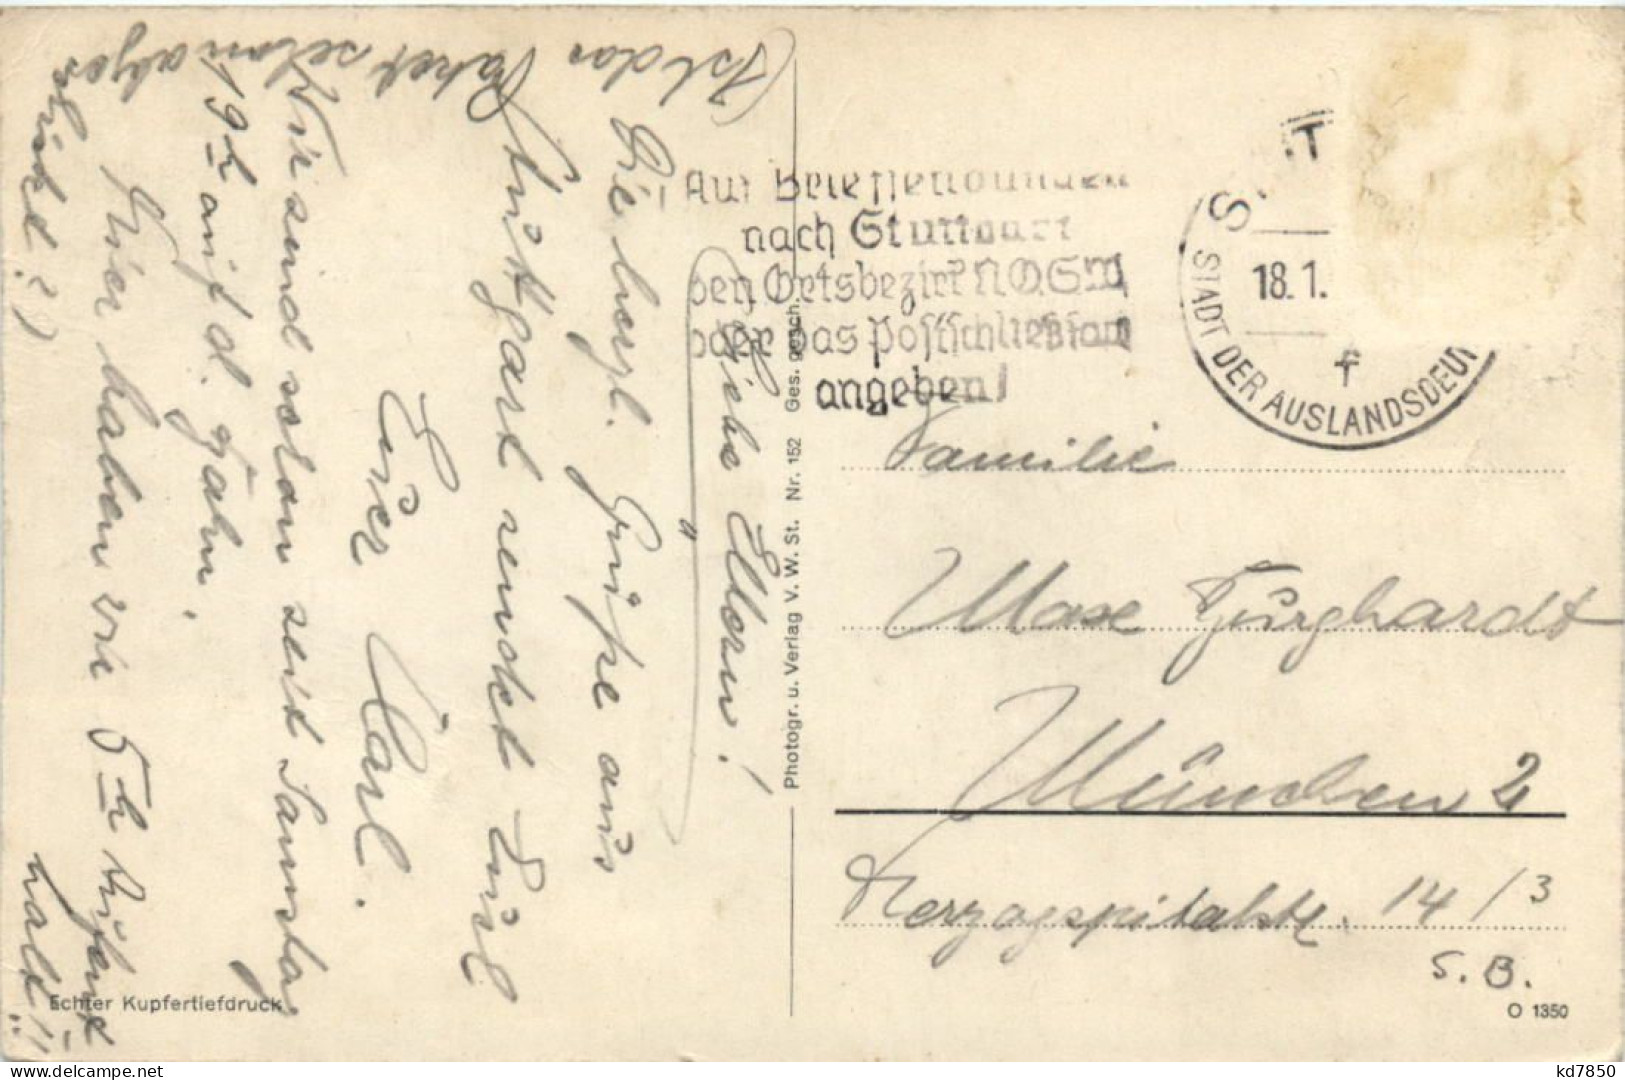 Liebe Eltern!
Die herzl. Grüße aus
Stuttgart sendet Euch
Euer Carl.
Wir sind schon seit Samstag
19 h auf d. Bahn.
Hier haben wir 5 h Aufent-
halt!!
(Ist das Paket schon abge-
schickt?)
Auf Briefsendungen
nach Stuttgart
den Ortsbezirk N.O.S.W
oder das Postschließfach
angeben!
S. T
18. 1.
STADT DER AUSLANDSDEU
f
Familie
Max Burghardt
München 2
Herzogspitalstr. 14/3
S. B.
Photogr. u. Verlag V. W. St. Nr. 152 Ges. gesch.
Echter Kupfertiefdruck
O 1350
https://www.delcampe.net
kd7850